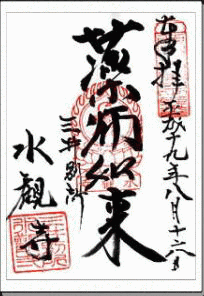 奉拝 平成十九年八月十六日
薬師如来
三井別所
水観寺